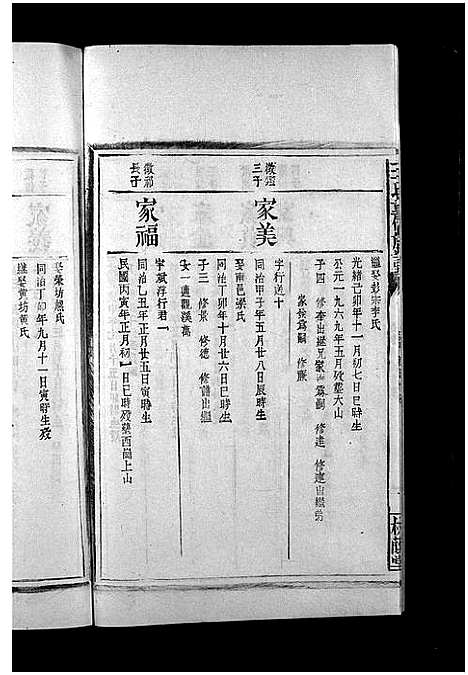 繼娶彭宗李氏
光緒己卯年十一月初七日巳時生
公元一九六九年五月歿塟大山
子四 修奎出繼兄家 爲嗣 修達 修連出繼男
家 爲嗣 修
徵 三子
家美
字行送十
同治甲子年五月廿八日辰時生
娶南邑宗氏
同治丁卯年十月廿六日巳時生
子三 修景 修德 修 出繼
女一 適觀溪萬
徵祁長子
家福
字斌浮行君一
同治乙丑年正月廿五日寅時生
民國丙寅年正月初一日巳時歿塟西崗上山
家義
娶榮坊熊氏
同治丁卯年九月十一日寅時生歿
繼娶黃坊曹氏